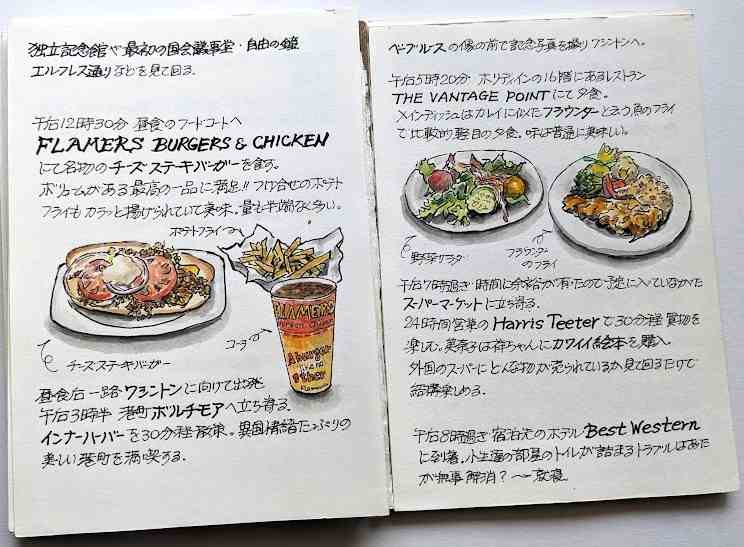 独立記念館や最初の国会議事堂・自由の鐘
エルフレス通りなどを見て回る。
午后12時30分 昼食のフードコートへ
FLAMERS BURGERS & CHICKEN
にて名物のチーズステーキバーガーを食す。
ボリュームがある最高の一品に満足!! つけ合せのポテト
フライもカラッと揚げられていて美味。量も半端なく多い。
ポテトフライ
チーズステーキバーガー
コーラ
FLAMERS
Burgers Chicken
A burger
than
other
昼食后一路・ワシントンに向けて出発
午后3時半 港町ボルチモアへ立ち寄る。
インナーハーバーを30分程散策。異国情緒たっぷりの
美しい港町を満喫する。
ベーブルースの像の前で記念写真を撮りワシントンへ。
午后5時20分 ホリディインの16階にあるレストラン
THE VANTAGE POINTにて夕食。
メインディッシュはカレイに似たフラウンダーと云う魚のフライ
で比較的軽目の夕食。味は普通に美味しい。
野菜サラダ
フラウンダー
のフライ
午后7時過ぎ・時間に余裕が有たので予定に入ていなかた
スーパーマーケットに立ち寄る。
24時間営業のHarris Teeterで30分程買物を
楽しむ。菜奈子は祥ちゃんにカワイイ絵本を購入。
外国のスーパーにどんな物が売られているか見て回るだけで
結構楽しめる。
午后8時過ぎ 宿泊先のホテル Best Western
に到着。小生達の部屋のトイレが詰まるトラブルはあた
が無事解消?〜就寝。